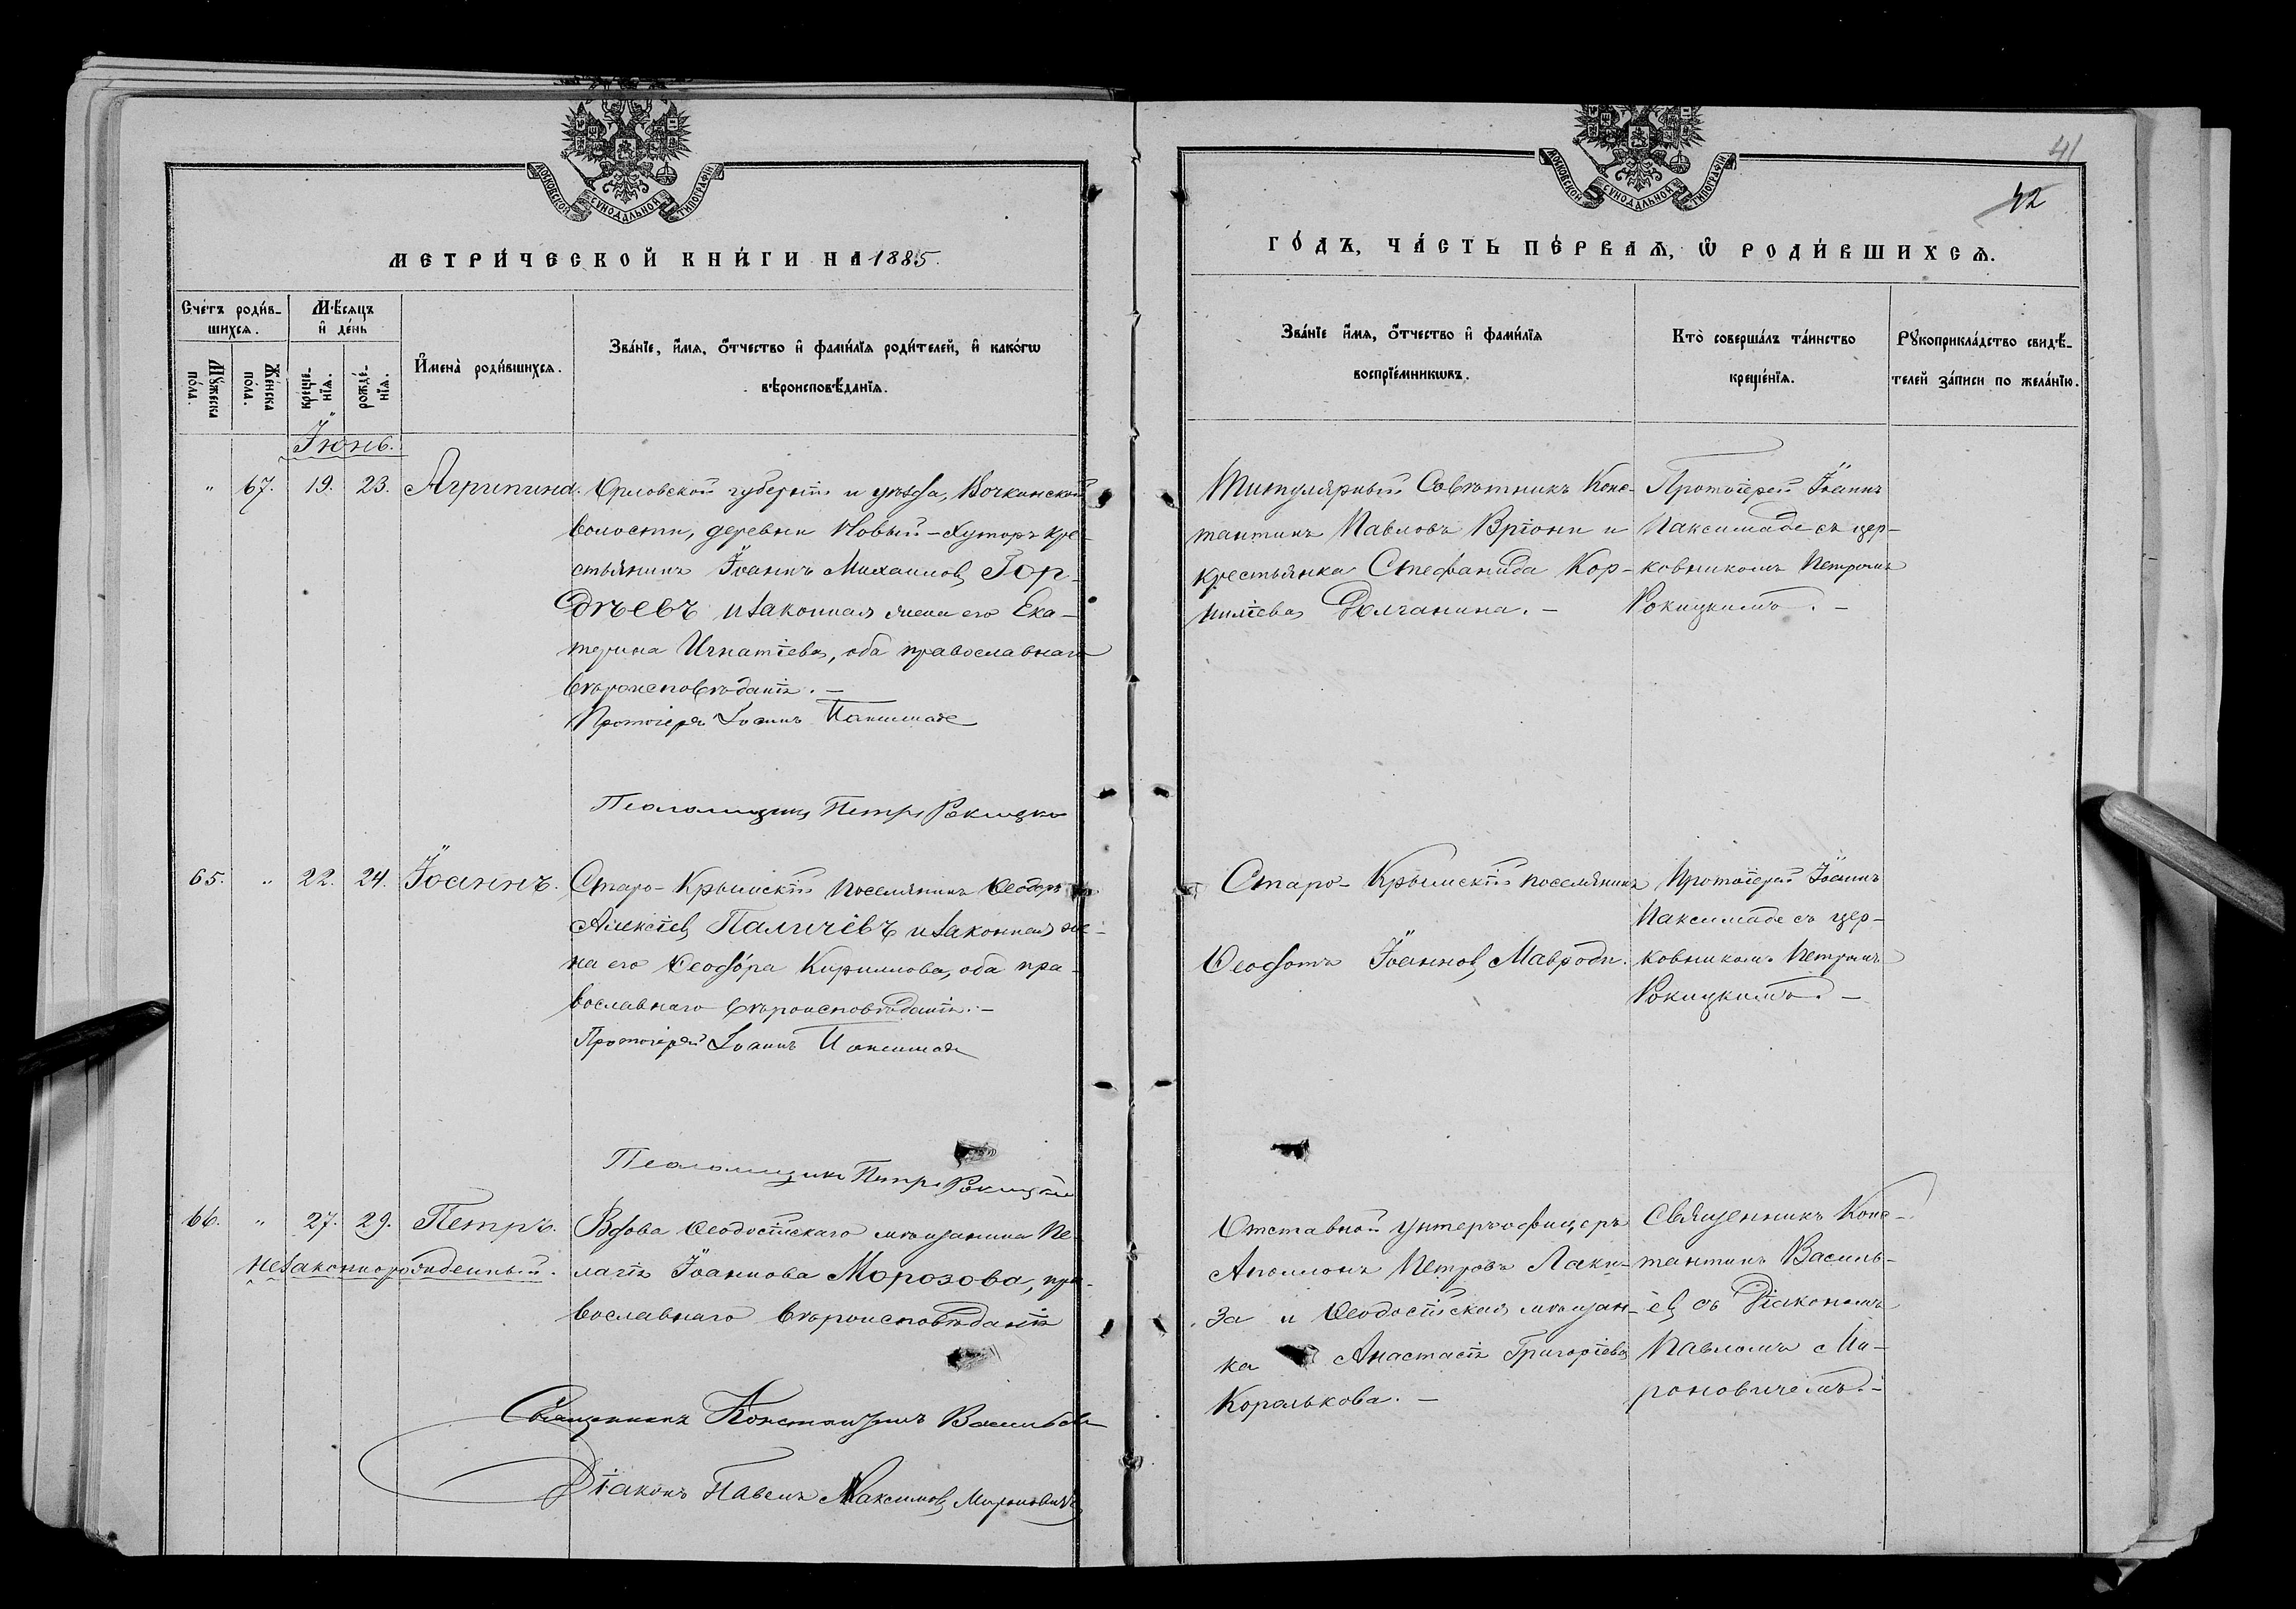 МОСКОВСКОЙ СѴНОДАЛЬНОЙ ТИПОГРАФІИ
МЕТРИ́ЧЕСКОЙ КНИ́ГИ НА 1885.
Сче́тъ роди́в-
шихсѧ.
Мѣ́сѧцъ
и҆ де́нь
Мꙋ́жеска
по́ла.
Же́нска
по́ла.
креще́-
нїѧ.
рожде́-
нїѧ.
И҆мена̀ роди́вшихсѧ.
Зва́нїе, и҆́мѧ, ѻ҆́тчество и҆ фами́лїѧ роди́телей, и҆ како́гѡ
вѣроисповѣ́данїѧ.
Іюнь.
" 67. 19. 23. Агрипина. Орловской губерніи и уѣзда,
волости, деревни Новый-Хуторъ кре-
стьянинъ Іоаннъ Михаиловъ Гор-
дѣевъ и законная жена его Ека-
терина Игнатіева, оба православнаго
вѣроисповѣданія. –
Протоіерей Іоаннъ Паксимаде
Псаломщикъ Петръ Рокицкій
65. " 22. 24. Іоаннъ. Старо-Крымскій поселянинъ Ѳеодоръ
Алексіевъ Паличевъ и законная же-
на его Ѳеодо́ра Кирилова, оба пра-
вославнаго вѣроисповѣданія. –
Протоіерей Іоаннъ Паксимаде
Псаломщикъ Петръ Рокицкій
66. " 27. 29. Петръ. Вдова Ѳеодосійскаго мѣщанина Пе-
незаконнорожденный. лагія Іоаннова Морозова, пра-
вославнаго вѣроисповѣданія
Священникъ Константинъ Васильевъ
Діаконъ Павелъ Максимовъ Мироновичъ
МОСКОВСКОЙ СѴНОДАЛЬНОЙ ТИПОГРАФІИ
41
42
ГО́ДЪ, ЧА́СТЬ ПЕ́РВАѦ, Ѽ РОДИ́ВШИХСѦ.
Зва́нїе и҆́мѧ, ѻ҆́тчество и҆ фами́лїѧ
воспрїе́мникѡвъ.
Кто̀ соверша́лъ та́инство
креще́нїѧ.
Рꙋкоприкла́дство свидѣ́-
телей за́писи по жела́нїю.
Титулярный Совѣтникъ Конс-
тантинъ Павловъ Вріони и
крестьянка Стефанида Кор-
ниліева Долчанина. –
Протоіерей Іоаннъ
Паксимаде съ цер-
ковникомъ Петромъ
Рокицкимъ. –
Старо-Крымскій поселянинъ
Ѳеодотъ Іоанновъ Мавроди.
Протоіерей Іоаннъ
Паксимаде съ цер-
ковникомъ Петромъ
Рокицкимъ. –
Отставной унтеръ-офицеръ
Аполлонъ Петровъ Лаки-
за и Ѳеодосійская мѣщан-
ка Анастасія Григоріева
Королькова. –
Священникъ Конс-
тантинъ Василь-
евъ съ Діакономъ
Павломъ Ми-
роновичемъ. –